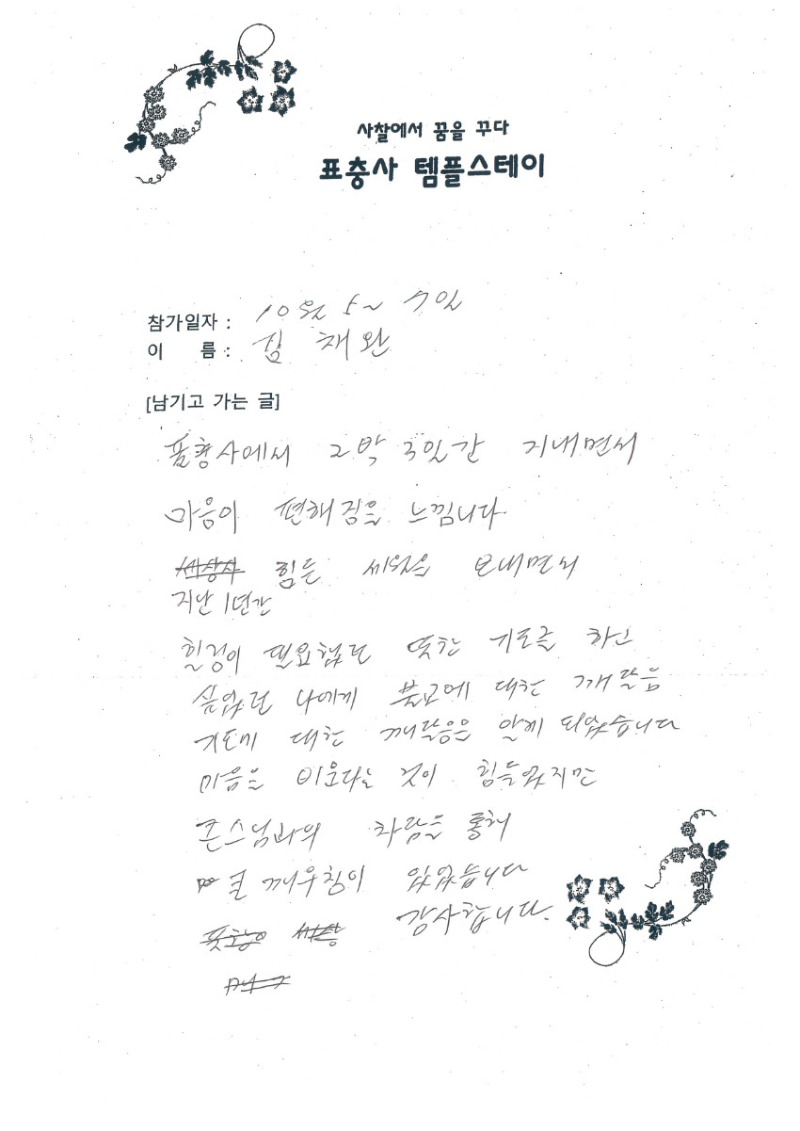 사찰에서 꿈을 꾸다
표충사 템플스테이
참가일자 : 10월 5~ 7일
이 름 : 김 채완
[남기고 가는 글]
표충사에서 2박 3일간 지내면서
마음이 편해짐을 느낌니다
세상사 힘든 세월을 보내면서
지난 1년간
힐링이 필요했던 또한 기도를 하고
싶었던 나에게 불교에 대한 깨달음
기도에 대한 깨달음을 알게 되었습니다
마음을 비운다는 것이 힘들었지만
큰스님과의 차담을 통해
큰 깨우침이 있었습니다
감사합니다.